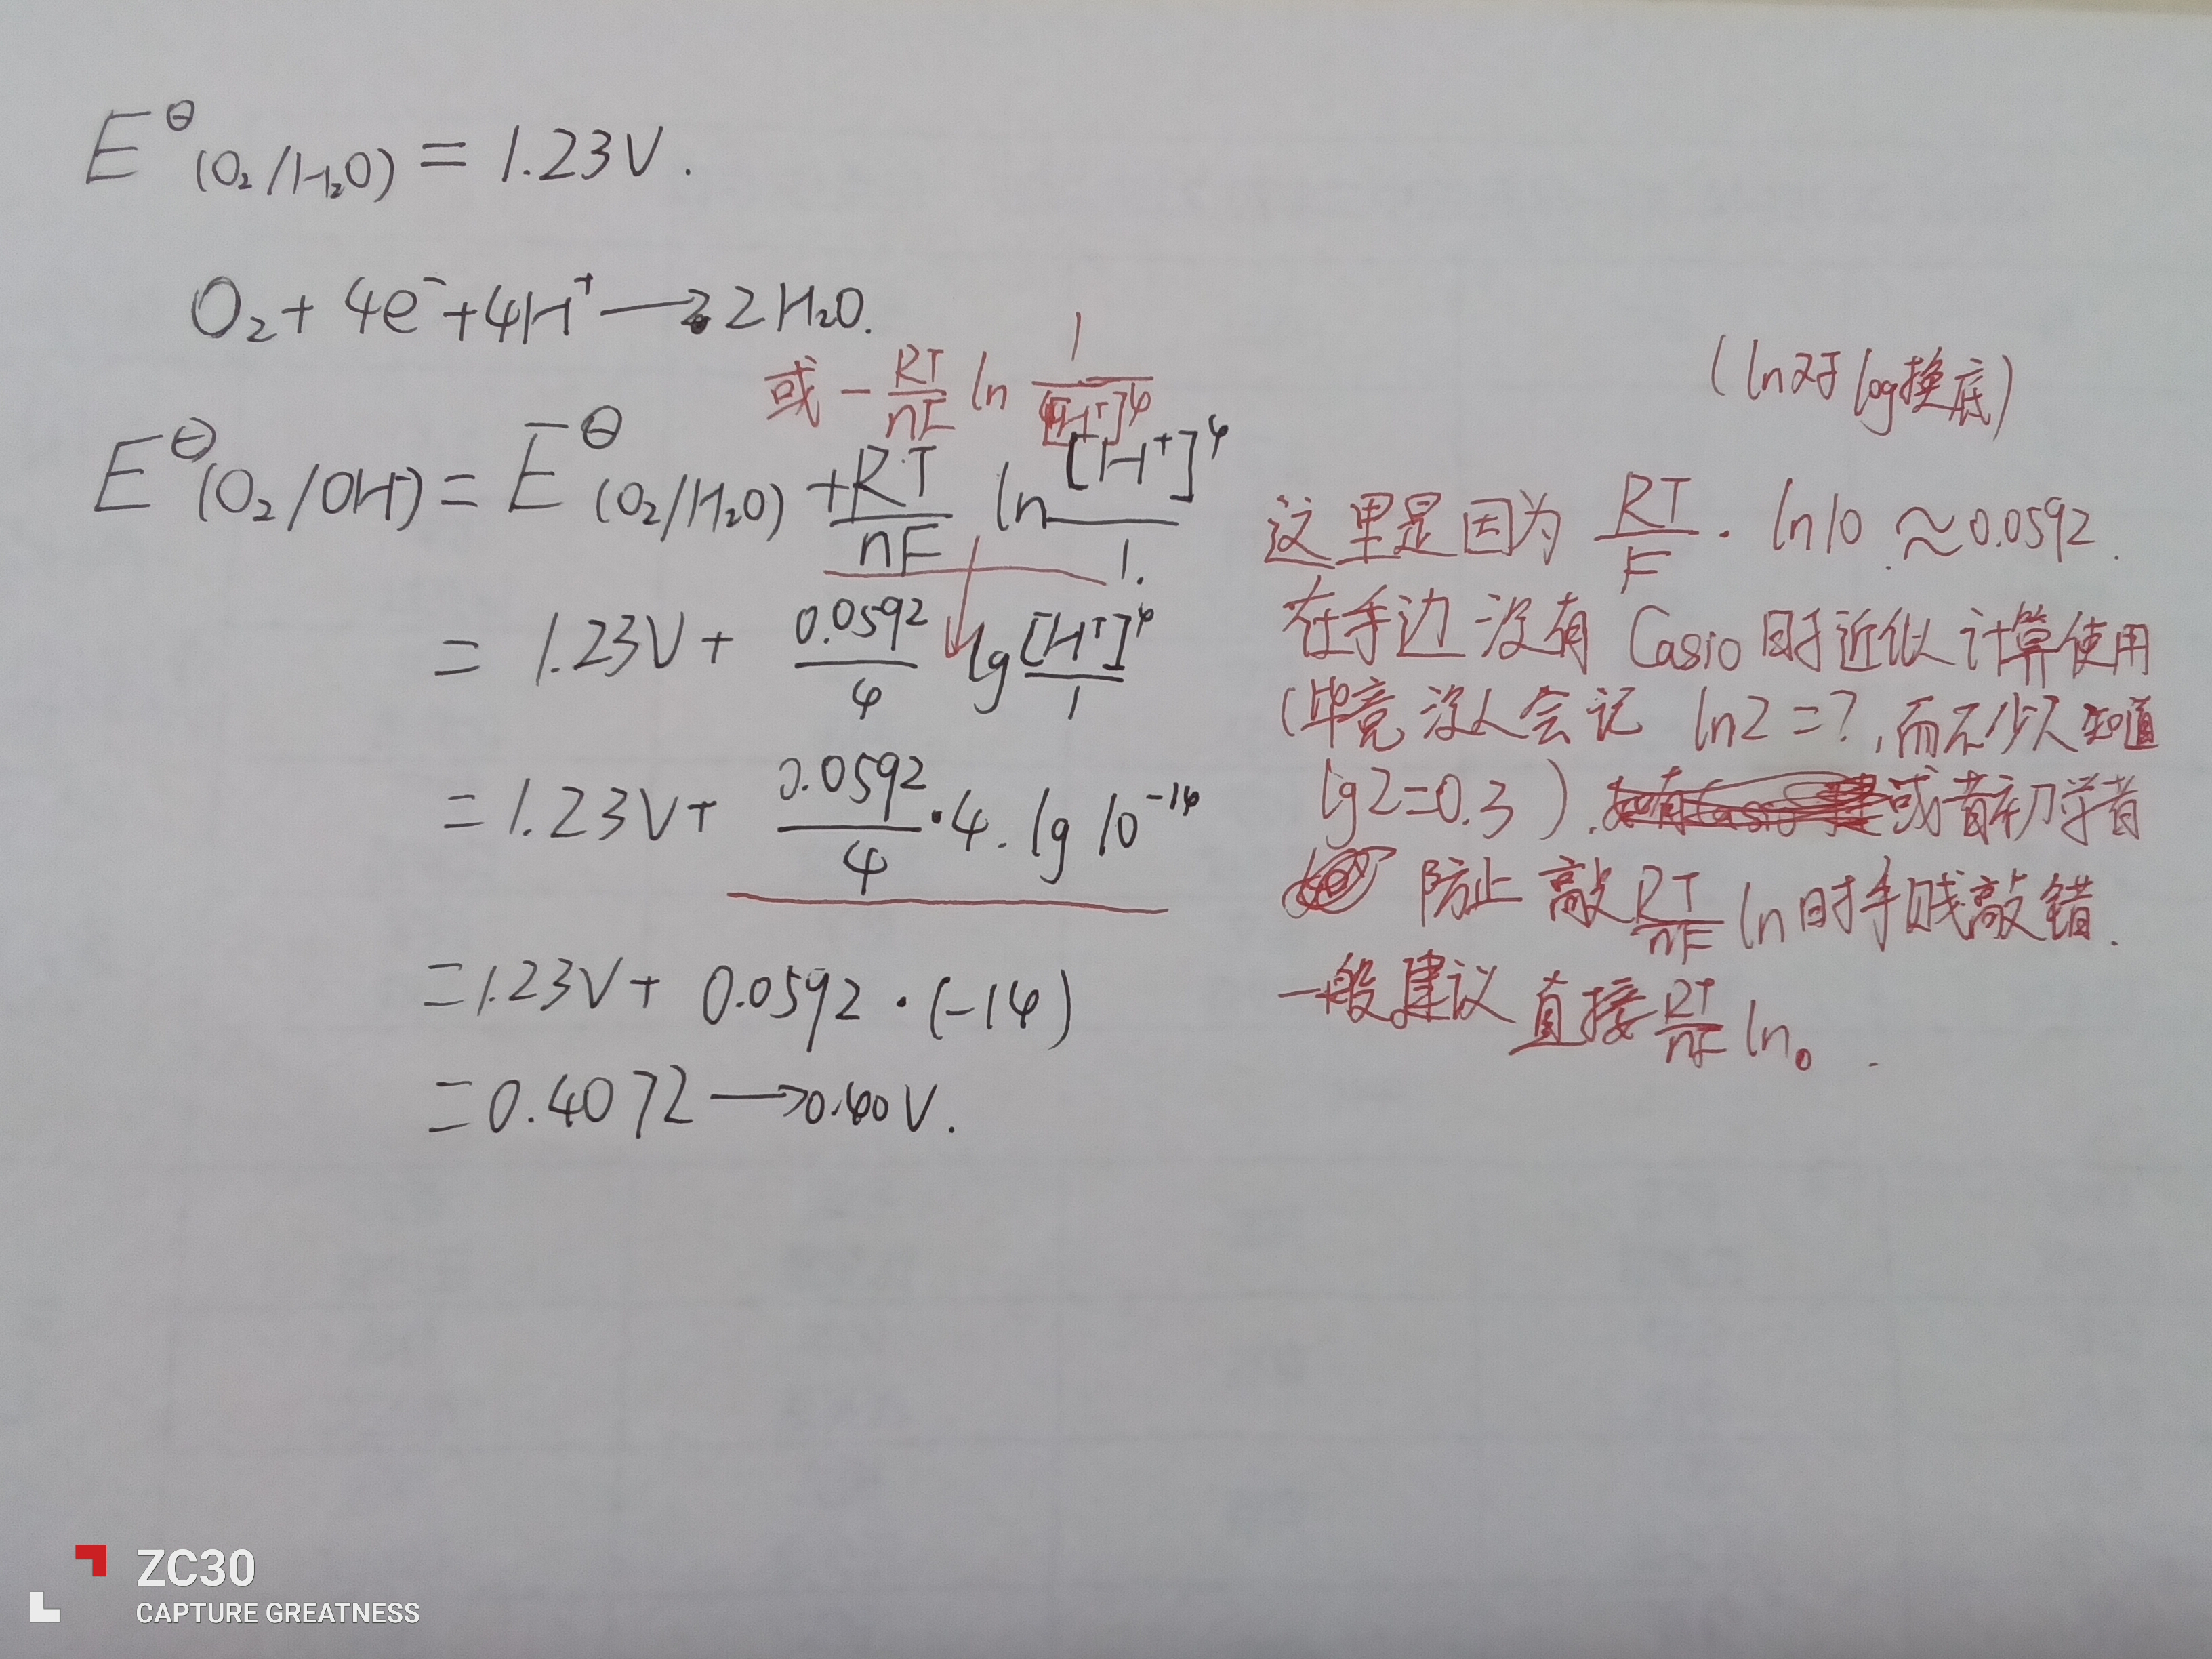 E⊖(O₂/H₂O) = 1.23V.
O₂ + 4e⁻ + 4H⁺ → 2H₂O.
或 - RT/nF ln 1/[H⁺]⁴
E⊖(O₂/OH⁻) = E⊖(O₂/H₂O) + RT/nF ln [H⁺]⁴/1.
= 1.23V + 0.0592/4 lg [H⁺]⁴/1
= 1.23V + 0.0592/4 · 4 · lg 10⁻¹⁴
= 1.23V + 0.0592 · (-14)
= 0.4072 → 0.40V.
(ln对于log换底)
这里是因为 RT/F · ln10 ≈ 0.0592.
在手边没有 Casio 时近似计算使用
(毕竟没人会记 ln2=?, 而不少人知道
lg2=0.3). 或者初学者
防止敲 RT/nF ln 时手贱敲错.
一般建议直接 RT/nF ln。
ZC30
CAPTURE GREATNESS